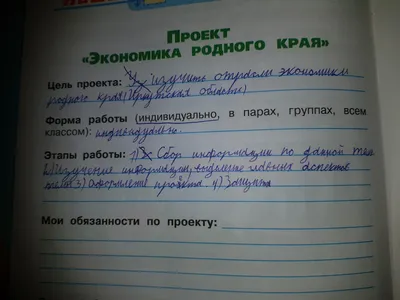 ПРОЕКТ
«ЭКОНОМИКА РОДНОГО КРАЯ»
Цель проекта: изучить отрасли экономики
родного края (Иркутская область)
Форма работы (индивидуально, в парах, группах, всем
классом): индивидуально.
Этапы работы: 1) Сбор информации по данной теме
2) изучение информации, выделение главных аспектов
темы 3) Оформление проекта 4) Защита
Мои обязанности по проекту: